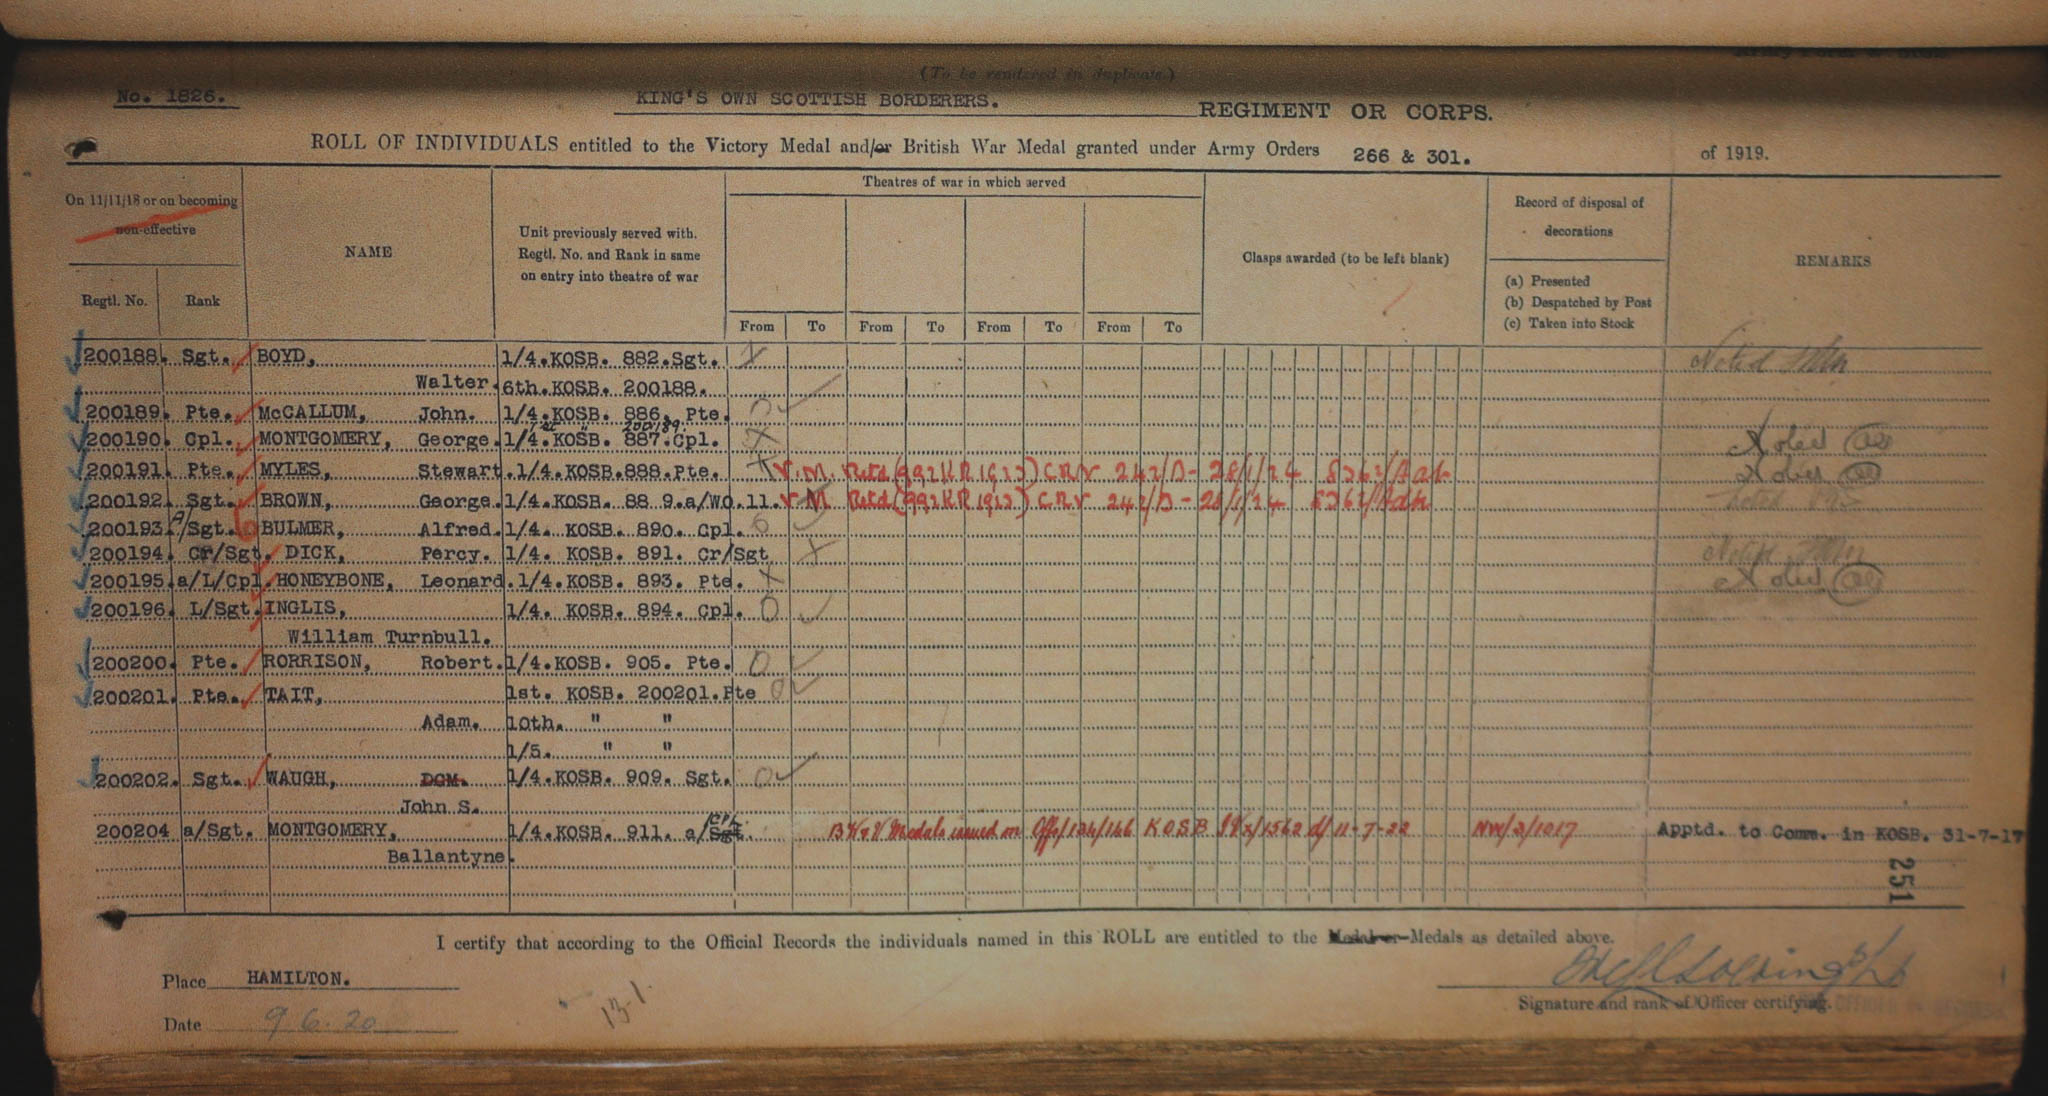 (To be rendered in duplicate.)
No. 1826.
KING'S OWN SCOTTISH BORDERERS. REGIMENT OR CORPS.
ROLL OF INDIVIDUALS entitled to the Victory Medal and/or British War Medal granted under Army Orders 266 & 301. of 1919.
On 11/11/18 or on becoming non-effective
Regtl. No. Rank
NAME
Unit previously served with. Regtl. No. and Rank in same on entry into theatre of war
Theatres of war in which served
From To From To From To From To
Clasps awarded (to be left blank)
Record of disposal of decorations
(a) Presented
(b) Despatched by Post
(c) Taken into Stock
REMARKS
200188. Sgt. BOYD, 1/4.KOSB. 882.Sgt. Noted
Walter. 6th.KOSB. 200188.
200189. Pte. McCALLUM, John. 1/4.KOSB. 886, Pte.
1st " 200189.
200190. Cpl. MONTGOMERY, George. 1/4.KOSB. 887.Cpl. Noted
200191. Pte. MYLES, Stewart. 1/4.KOSB.888.Pte. V.M. Retd (992 KR 1923) CRV 242/D - 28/1/24 8362/Adt. Noted
200192. Sgt. BROWN, George. 1/4.KOSB. 88 9.a/WO.11. V M Retd (992 KR 1923) CRV 242/D - 28/1/24 8362/Adt. Noted
200193. A/Sgt. BULMER, Alfred. 1/4. KOSB. 890. Cpl.
200194. Cr/Sgt. DICK, Percy. 1/4. KOSB. 891. Cr/Sgt Noted
200195. a/L/Cpl. HONEYBONE, Leonard. 1/4.KOSB. 893. Pte. Noted
200196. L/Sgt. INGLIS, 1/4. KOSB. 894. Cpl.
William Turnbull.
200200. Pte. RORRISON, Robert. 1/4.KOSB. 905. Pte.
200201. Pte. TAIT, 1st. KOSB. 200201.Pte
Adam. 10th. " "
1/5. " "
200202. Sgt. WAUGH, DCM. 1/4.KOSB. 909. Sgt.
John S.
200204 a/Sgt. MONTGOMERY, 1/4.KOSB. 911. a/Sgt. CPL. B W & V Medals issued on Offs/124/166 KOSB 19x/1562 d/ 11-7-22 NW/2/1017 Apptd. to Comm. in KOSB. 31-7-17
Ballantyne.
251
I certify that according to the Official Records the individuals named in this ROLL are entitled to the Medal or Medals as detailed above.
Place HAMILTON.
Signature and rank of Officer certifying.
Date 9.6.20
13-1.